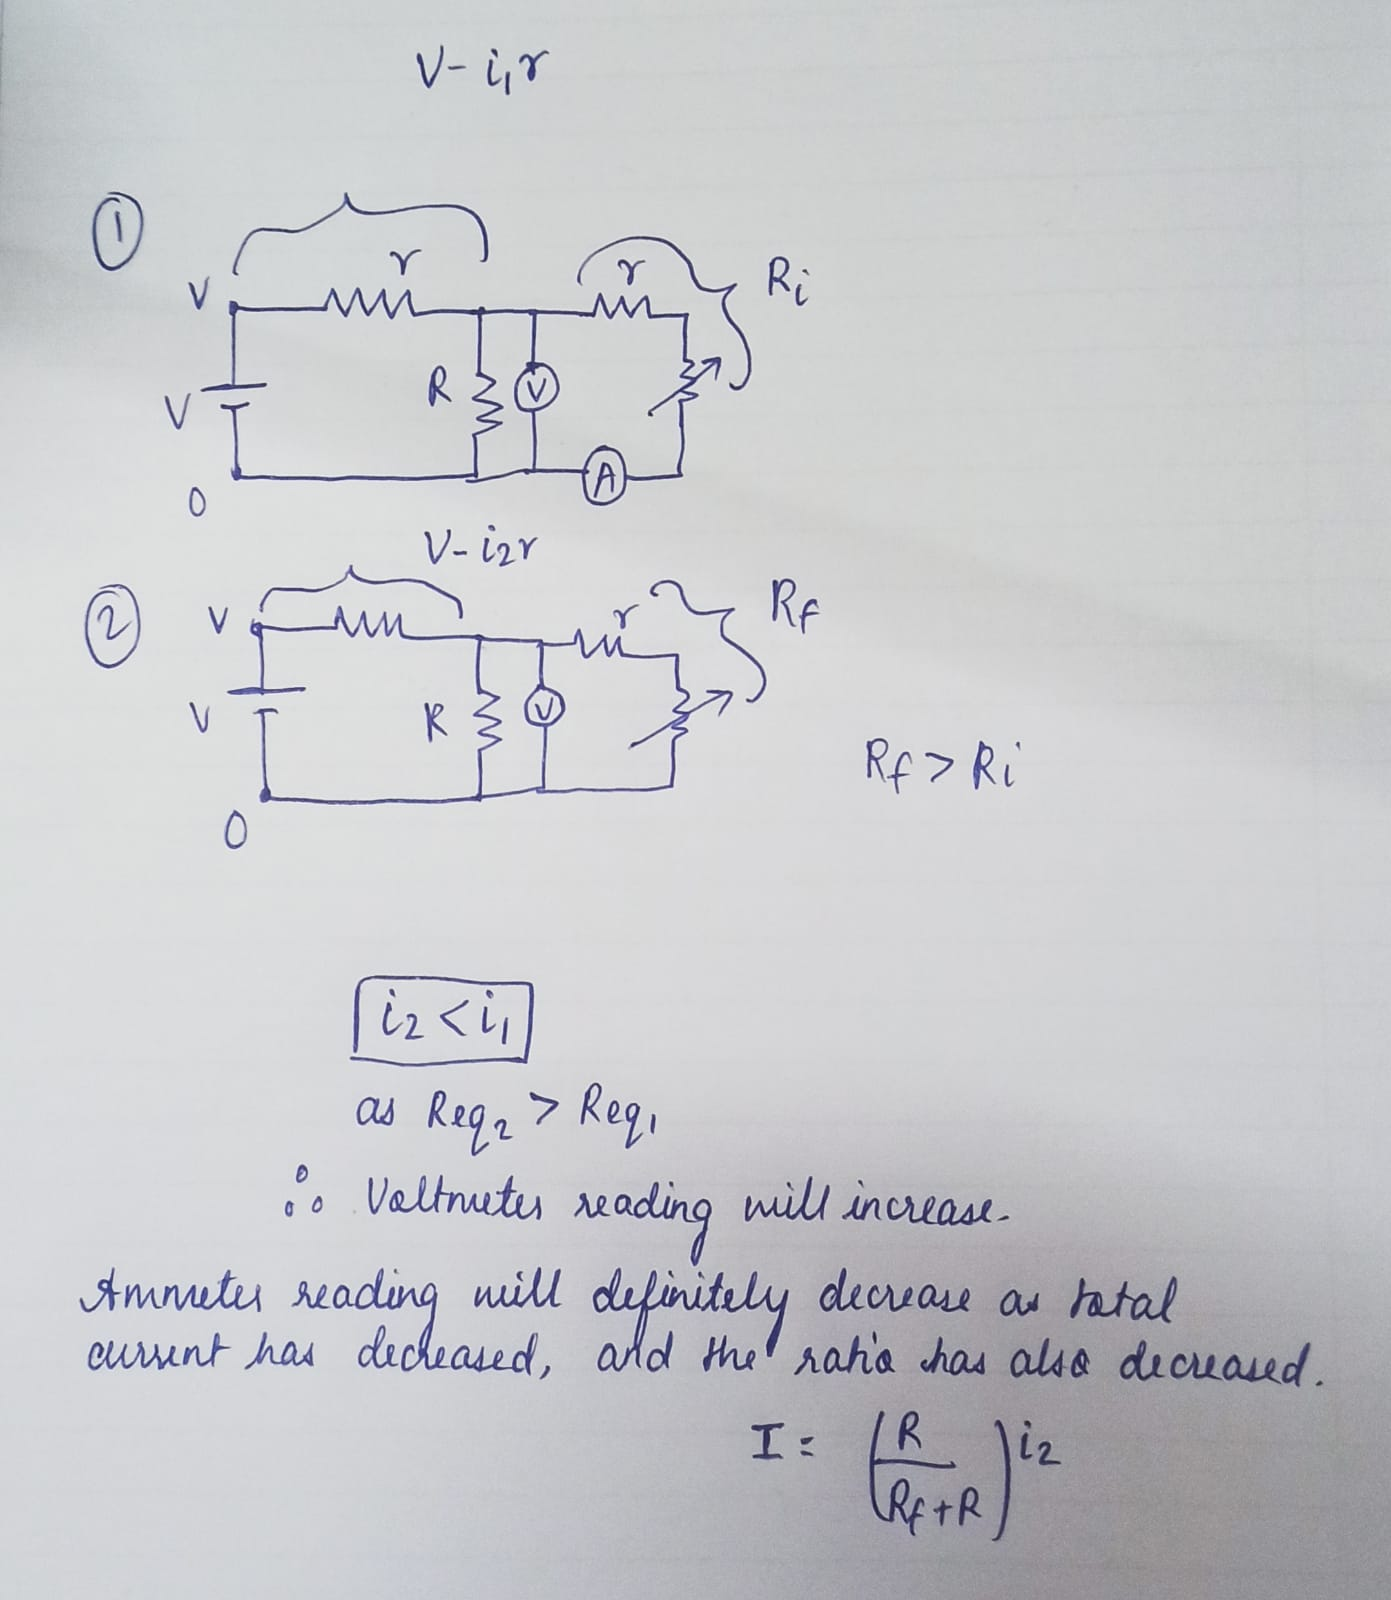 V - i₁r
①
r
r
Ri
V
R
V
V
A
0
V - i₂r
②
V
r
Rf
V
R
V
Rf > Ri
0
i₂ < i₁
as Req₂ > Req₁
∴ Voltmeter reading will increase.
Ammeter reading will definitely decrease as total
current has decreased, and the ratio has also decreased.
I = (R / (Rf + R)) i₂